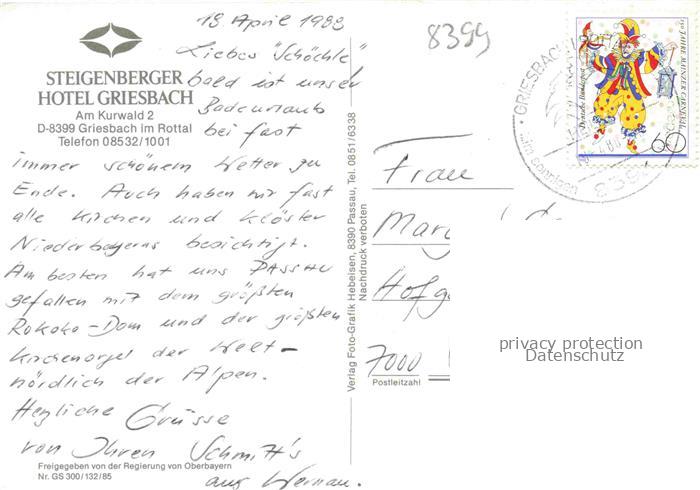 18 April 1988
8399
Liebes "Schöchle"
STEIGENBERGER
HOTEL GRIESBACH
Am Kurwald 2
D-8399 Griesbach im Rottal
Telefon 08532/1001
bald ist unser
Badeurlaub
bei fast
immer schönem Wetter zu
Ende. Auch haben wir fast
alle Kirchen und Klöster
Niederbayerns besichtigt.
Am besten hat uns PASSAU
gefallen mit dem größten
Rokoko-Dom und der größten
Kirchenorgel der Welt-
nördlich der Alpen.
Herzliche Grüsse
von Ihren Schmitt's
aus Wernau.
Freigegeben von der Regierung von Oberbayern
Nr. GS 300/132/85
Verlag Foto-Grafik Hebeisen, 8390 Passau, Tel. 0851/6338
Nachdruck verboten
Frau
Marg
Hofg
7000
Postleitzahl
GRIESBACH
8399
Deutsche Bundespost
150 JAHRE MAINZER CARNEVAL
60
privacy protection
Datenschutz